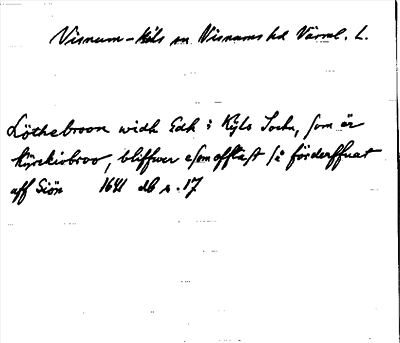 Visnum-Kils sn Visnums hd Värml. L.
Löthebroon widh Edh i Kijls Sochn, som är
kyrckiobroo, bliffwer esomofftast så förderffuat
aff Siön 1641 db s. 17